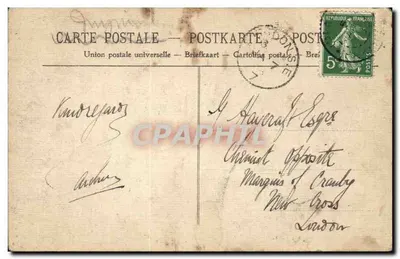 CARTE POSTALE — POSTKARTE — POST
Union postale universelle — Briefkaart — Cartolina postale — Brev
REPUBLIQUE FRANÇAISE
5c
POSTES
Kind regards
Archer
G Haveraft Esqre
Chemist Opposite
Marquis of Granby
New-Cross
London
CPAPHIL